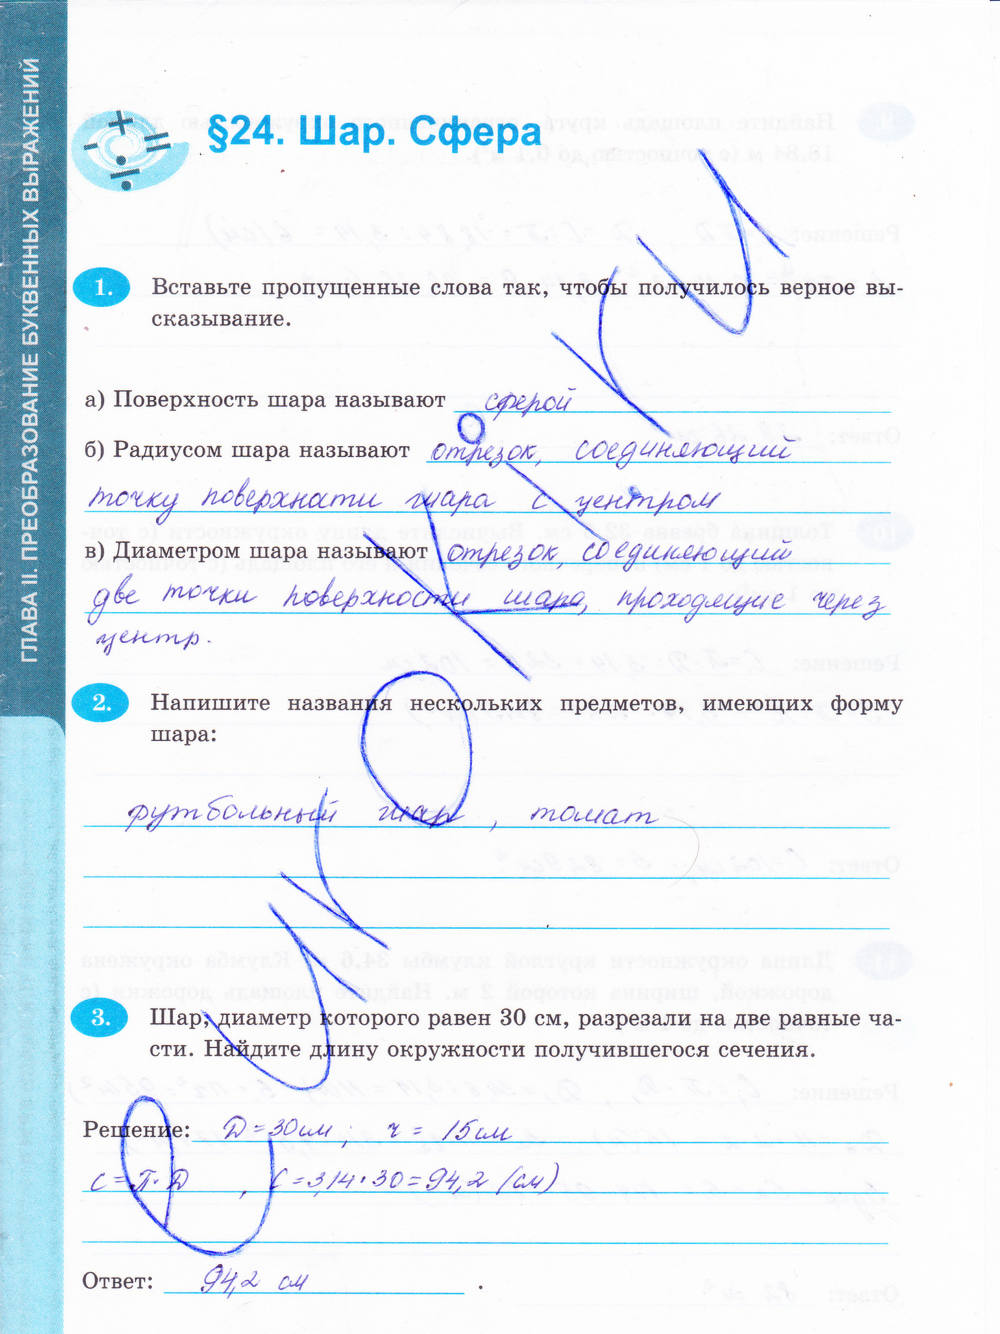 ГЛАВА II. ПРЕОБРАЗОВАНИЕ БУКВЕННЫХ ВЫРАЖЕНИЙ
§24. Шар. Сфера
1. Вставьте пропущенные слова так, чтобы получилось верное вы-
сказывание.
а) Поверхность шара называют сферой
б) Радиусом шара называют отрезок, соединяющий
точку поверхнати шара с центром
в) Диаметром шара называют отрезок соединяющий
две точки поверхности шара, проходящие через
центр.
2. Напишите названия нескольких предметов, имеющих форму
шара:
футбольный шар, томат
3. Шар, диаметр которого равен 30 см, разрезали на две равные ча-
сти. Найдите длину окружности получившегося сечения.
Решение: D=30см, r = 15см
C=π·D, C=3,14·30=94,2 (см)
Ответ: 94,2 см.